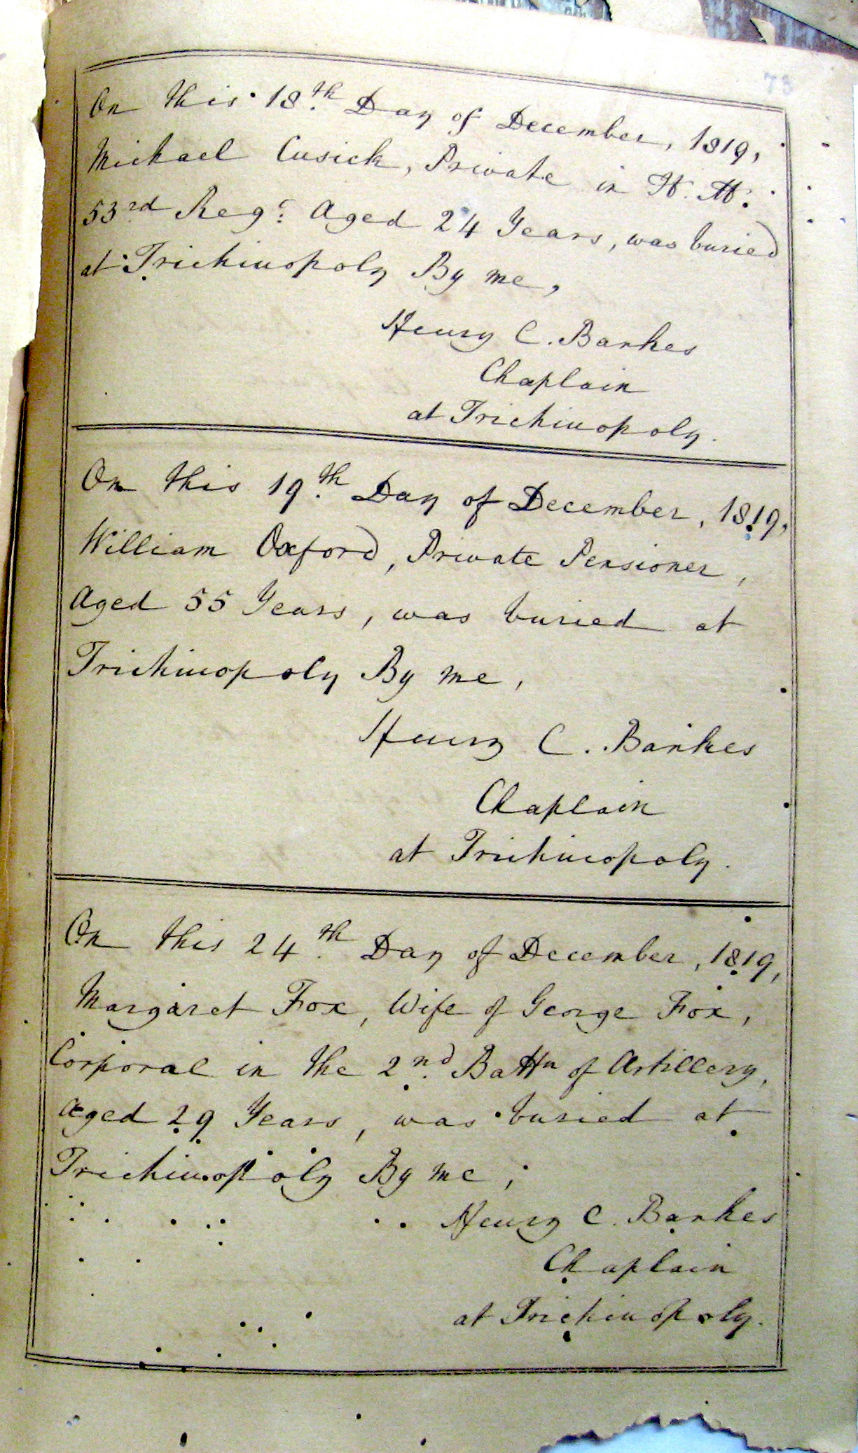 73
On this 18th Day of December, 1819,
Michael Cusick, Private in H. M.
53rd Regt. Aged 24 Years, was buried
at Trichinopoly By me,
Henry C. Bankes
Chaplain
at Trichinopoly.
On this 19th Day of December, 1819,
William Oxford, Private Pensioner,
Aged 55 Years, was buried at
Trichinopoly By me,
Henry C. Bankes
Chaplain
at Trichinopoly.
On this 24th Day of December, 1819,
Margaret Fox, Wife of George Fox,
Corporal in the 2nd Battn of Artillery,
aged 29 Years, was buried at
Trichinopoly By me,
Henry C. Bankes
Chaplain
at Trichinopoly.